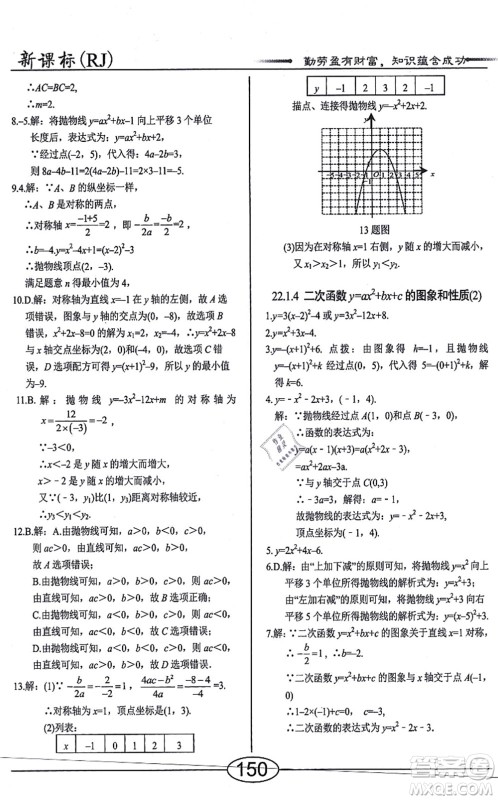 新课标(RJ)
勤劳盈有财富，知识蕴含成功
∴AC=BC=2,
∴m=2.
8.-5.解：将抛物线 y=ax²+bx-1 向上平移 3 个单位
长度后，表达式为：y=ax²+bx+2,
∵经过点(-2，5)，代入得：4a-2b=3,
则 8a-4b-11=2(4a-2b)-11=2×3-11=-5.
9.4.解：∵A、B 的纵坐标一样，
∴A、B 是对称的两点，
∴对称轴 x=(-1+5)/2=2，即 -b/2a=-b/2=2
∴b=-4.y=x²-4x+1=(x-2)²-3
∴抛物线顶点(2，-3).
满足题意 n 得最小值为 4,
10.D.解：对称轴为直线 x=-1 在 y 轴的左侧，故 A 选
项错误，图象与 y 轴的交点为(0，-8)，故选项 B
错误，x²+2x-8=0 的解为 x₁=2，x₂=-4，即抛物线
与 x 轴交点坐标为(2，0)、(-4，0)，故选项 C 错
误，D 选项配方可得 y=(x+1)²-9，所以 y 的最小值
为-9.
11.B.解：抛物线 y=-3x²-12x+m 的对称轴为
x=12/(2×(-3))=-2，
∵-3<0，
∴x<-2 时，y 随 x 的增大而增大，
x>-2 时，y 随 x 的增大而减小，
又∵(-3，y₁)比(-1，y₃)距离对称轴近，
∴y₃<y₁<y₂.
12.D.解：A.由抛物线可知，a>0，b<0，c>0，则 ac>0，
由直线可知，ac>0，b>0，
故 A 选项错误；
B.由抛物线可知，a>0，b>0，c>0，则 ac>0，
由直线可知，ac>0，b<0，故 B 选项错误；
C.由抛物线可知，a<0，b>0，c>0，则 ac<0，
由直线可知，ac<0，b<0，故 C 选项错误；
D.由抛物线可知，a<0，b<0，c>0，则 ac<0，
由直线可知，ac<0，b<0，故 D 选项正确.
13.解：(1)∵-b/2a=-2/-2=1，(4ac-b²)/4a=(-8-4)/-4=3.
∴对称轴为 x=1，顶点坐标为(1，3)；
(2)列表：
x -1 0 1 2 3
y -1 2 3 2 -1
描点、连接得抛物线 y=-x²+2x+2.
13 题图
(3)因为在对称轴 x=1 右侧，y 随 x 的增大而减小，
又 x₁>x₂>1，所以 y₁<y₂.
22.1.4 二次函数 y=ax²+bx+c 的图象和性质(2)
1.y=3(x-2)²-4 或 y=3x²-12x+8.
2.y=x²+3x-4.
3.y=-(x+1)²-6. 点拨：由题意得 h=-1，且抛物线
y=-(x+1)²+k 经过点(0，-7)，∴-7=-(0+1)²+k，
解得 k=-6.
4.y=-x²-2x+3，(-1，4).
解：∵抛物线过点 A(1，0)和点 B(-3，0)
∴函数的表达式为：
y=a(x-1)(x+3)=a(x²+2x-3)，
∴y=ax²+2ax-3a.
∵与 y 轴交于点 C(0,3)
∴-3a=3，解得：a=-1.
故抛物线的表达式为：y=-x²-2x+3，
顶点坐标为(-1，4).
5.y=2x²+4x-6.
6.D.解：由“上加下减”的原则可知，将抛物线 y=x² 向上
平移 3 个单位所得抛物线的解析式为：y=x²+3；
由“左加右减”的原则可知，将抛物线 y=x² 向右
平移 5 个单位所得抛物线的解析式为：y=(x-5)²+3.
7.解：∵二次函数 y=x²+bx+c 的图象关于直线 x=1 对称，
∴-b/2=1，
∴b=-2，
∵二次函数 y=x²-2x+c 经过点(-1，0)
∴1-2×(-1)+c=0，
∴c=-3，
∴二次函数的表达式为 y=x²-2x-3.
150
作业精灵
MXQE.COM